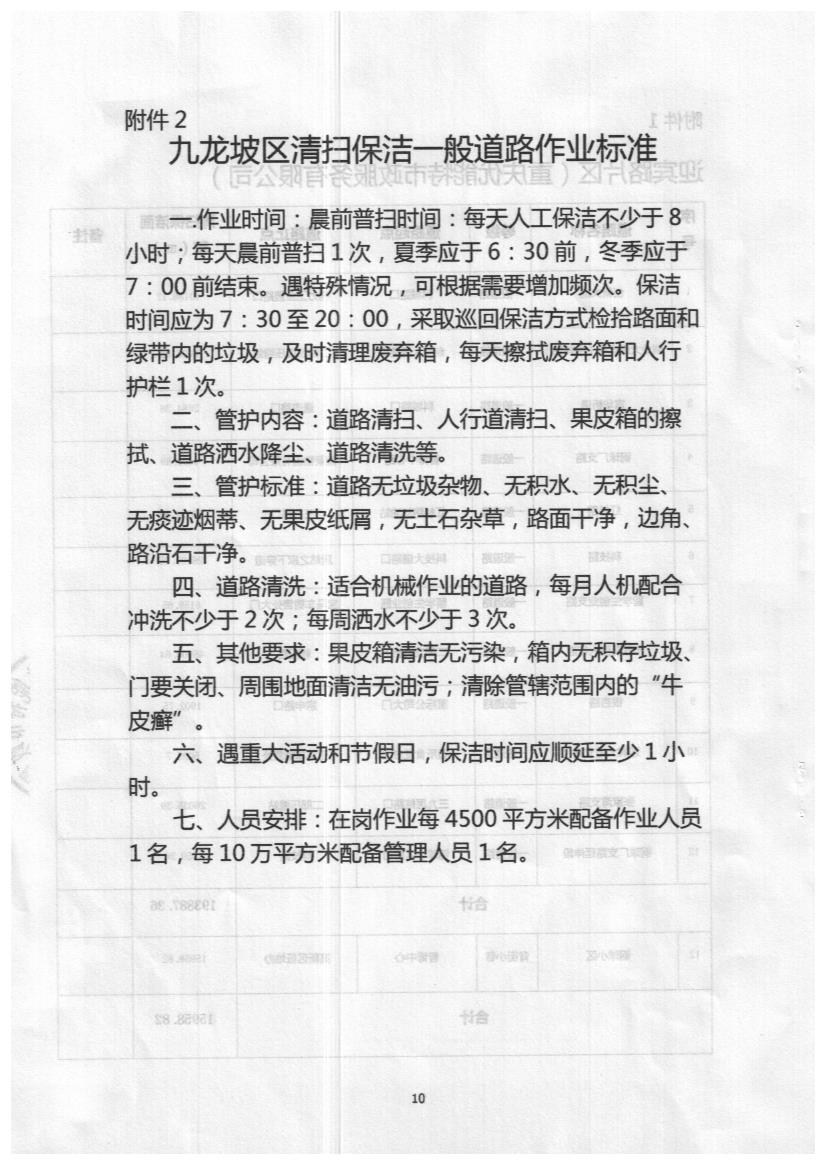 附件2
九龙坡区清扫保洁一般道路作业标准
一.作业时间：晨前普扫时间：每天人工保洁不少于8
小时；每天晨前普扫1次，夏季应于6：30前，冬季应于
7：00前结束。遇特殊情况，可根据需要增加频次。保洁
时间应为7：30至20：00，采取巡回保洁方式检拾路面和
绿带内的垃圾，及时清理废弃箱，每天擦拭废弃箱和人行
护栏1次。
二、管护内容：道路清扫、人行道清扫、果皮箱的擦
拭、道路洒水降尘、道路清洗等。
三、管护标准：道路无垃圾杂物、无积水、无积尘、
无痰迹烟蒂、无果皮纸屑，无土石杂草，路面干净，边角、
路沿石干净。
四、道路清洗：适合机械作业的道路，每月人机配合
冲洗不少于2次；每周洒水不少于3次。
五、其他要求：果皮箱清洁无污染，箱内无积存垃圾、
门要关闭、周围地面清洁无油污；清除管辖范围内的“牛
皮癣”。
六、遇重大活动和节假日，保洁时间应顺延至少1小
时。
七、人员安排：在岗作业每4500平方米配备作业人员
1名，每10万平方米配备管理人员1名。
10